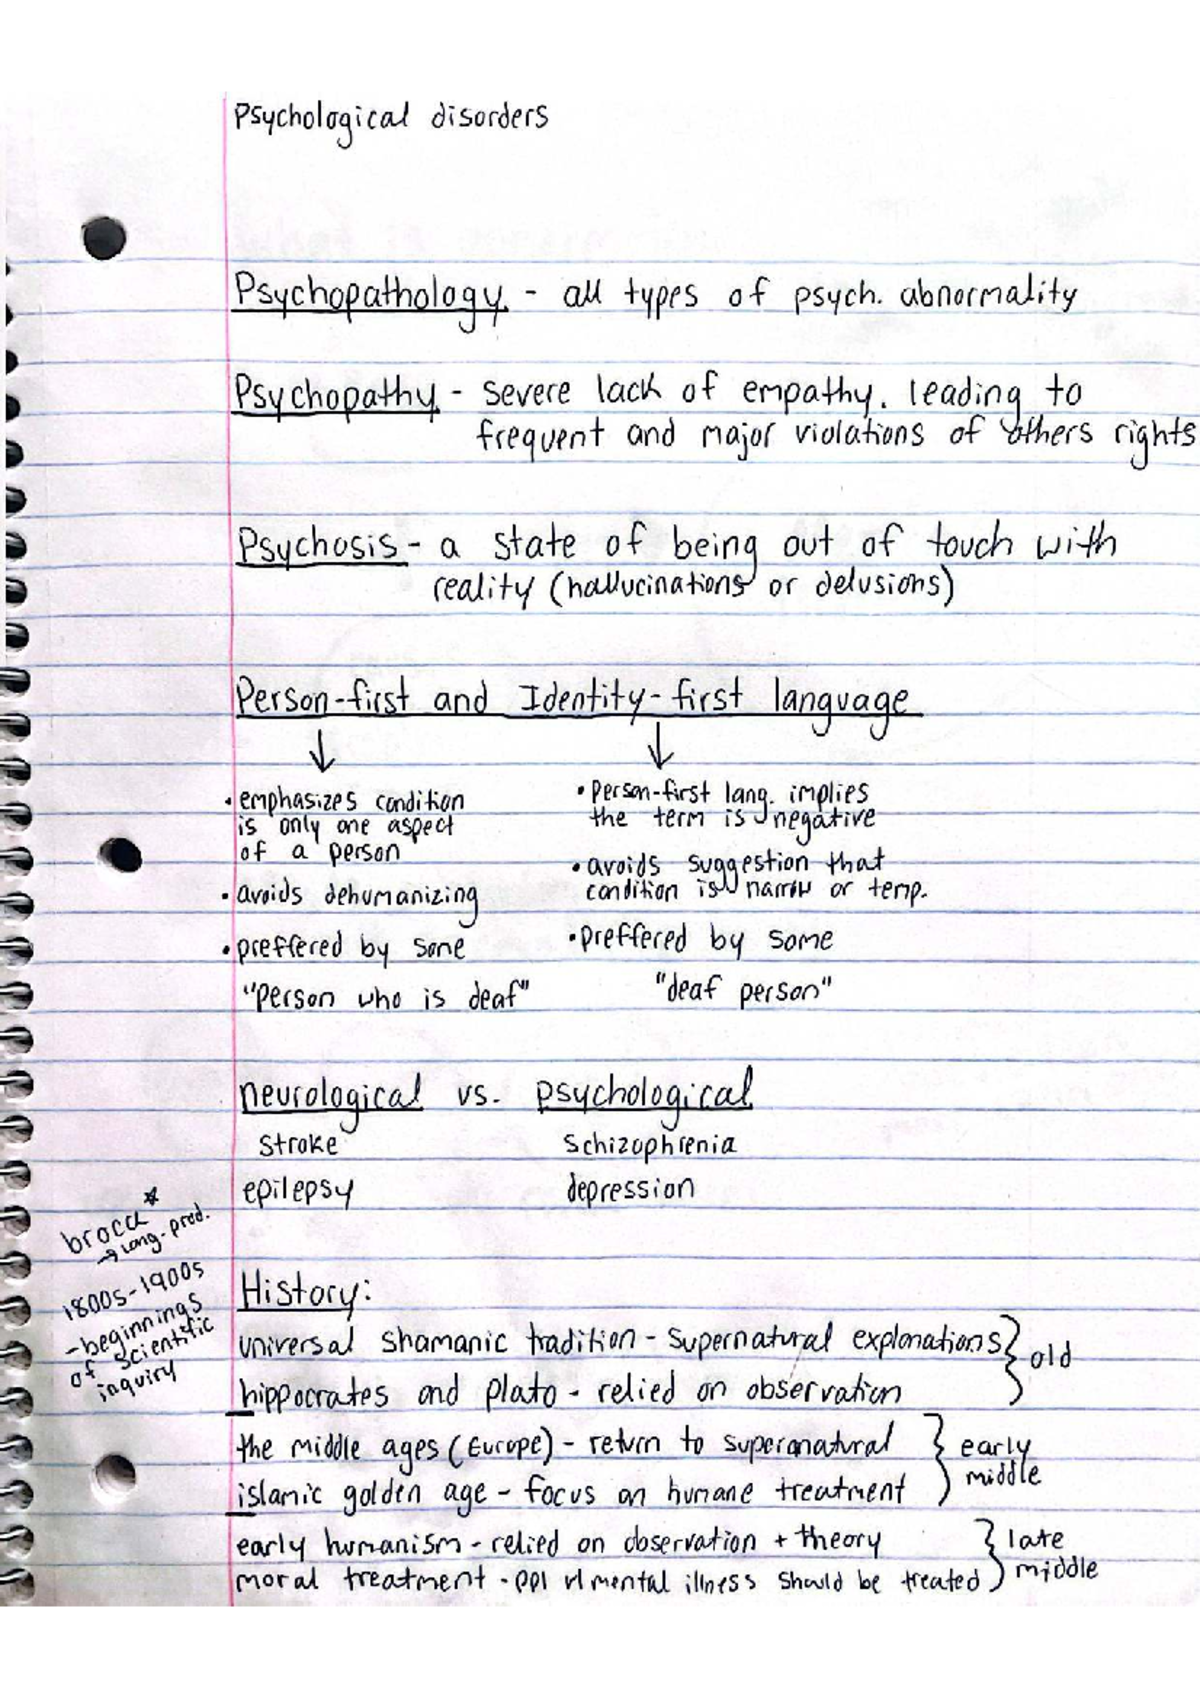 Psychological disorders
Psychopathology - all types of psych. abnormality
Psychopathy - severe lack of empathy. leading to
frequent and major violations of others rights
Psychosis - a state of being out of touch with
reality (hallucinations or delusions)
Person-first and Identity-first language
↓ ↓
• emphasizes condition
is only one aspect
of a person
• avoids dehumanizing
• preffered by some
"person who is deaf"
• Person-first lang. implies
the term is negative
• avoids suggestion that
condition is narrow or temp.
• preffered by some
"deaf person"
neurological vs. psychological
stroke schizophrenia
epilepsy depression
broca *
→ lang. prod.
1800s-1900s
- beginnings
of scientific
inquiry
History:
universal shamanic tradition - supernatural explanations } old
hippocrates and plato - relied on observation
the middle ages (Europe) - return to supernatural } early
islamic golden age - focus on humane treatment middle
early humanism - relied on observation + theory } late
moral treatment - ppl w/ mental illness should be treated middle